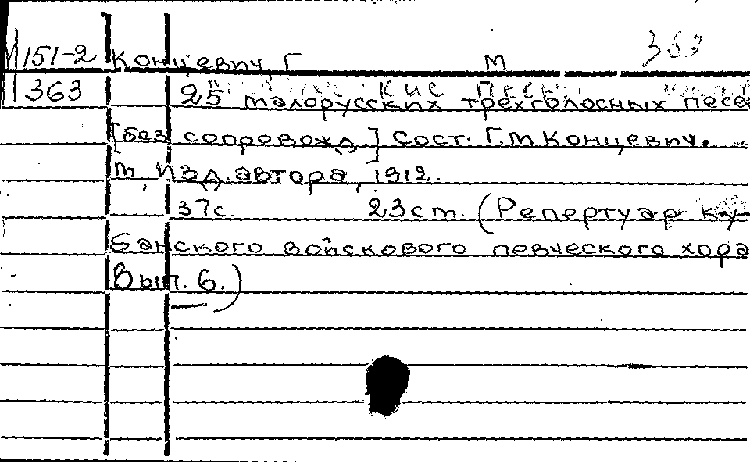 М 151-2 Концевич, Г М
363 25 малорусских трехголосных песе
[без сопровожд.] Сост. Г.М Концевич.
М, Изд. автора, 1912.
37с. 23см. (Репертуар ку-
банского войскового певческого хора
Вып. 6.)